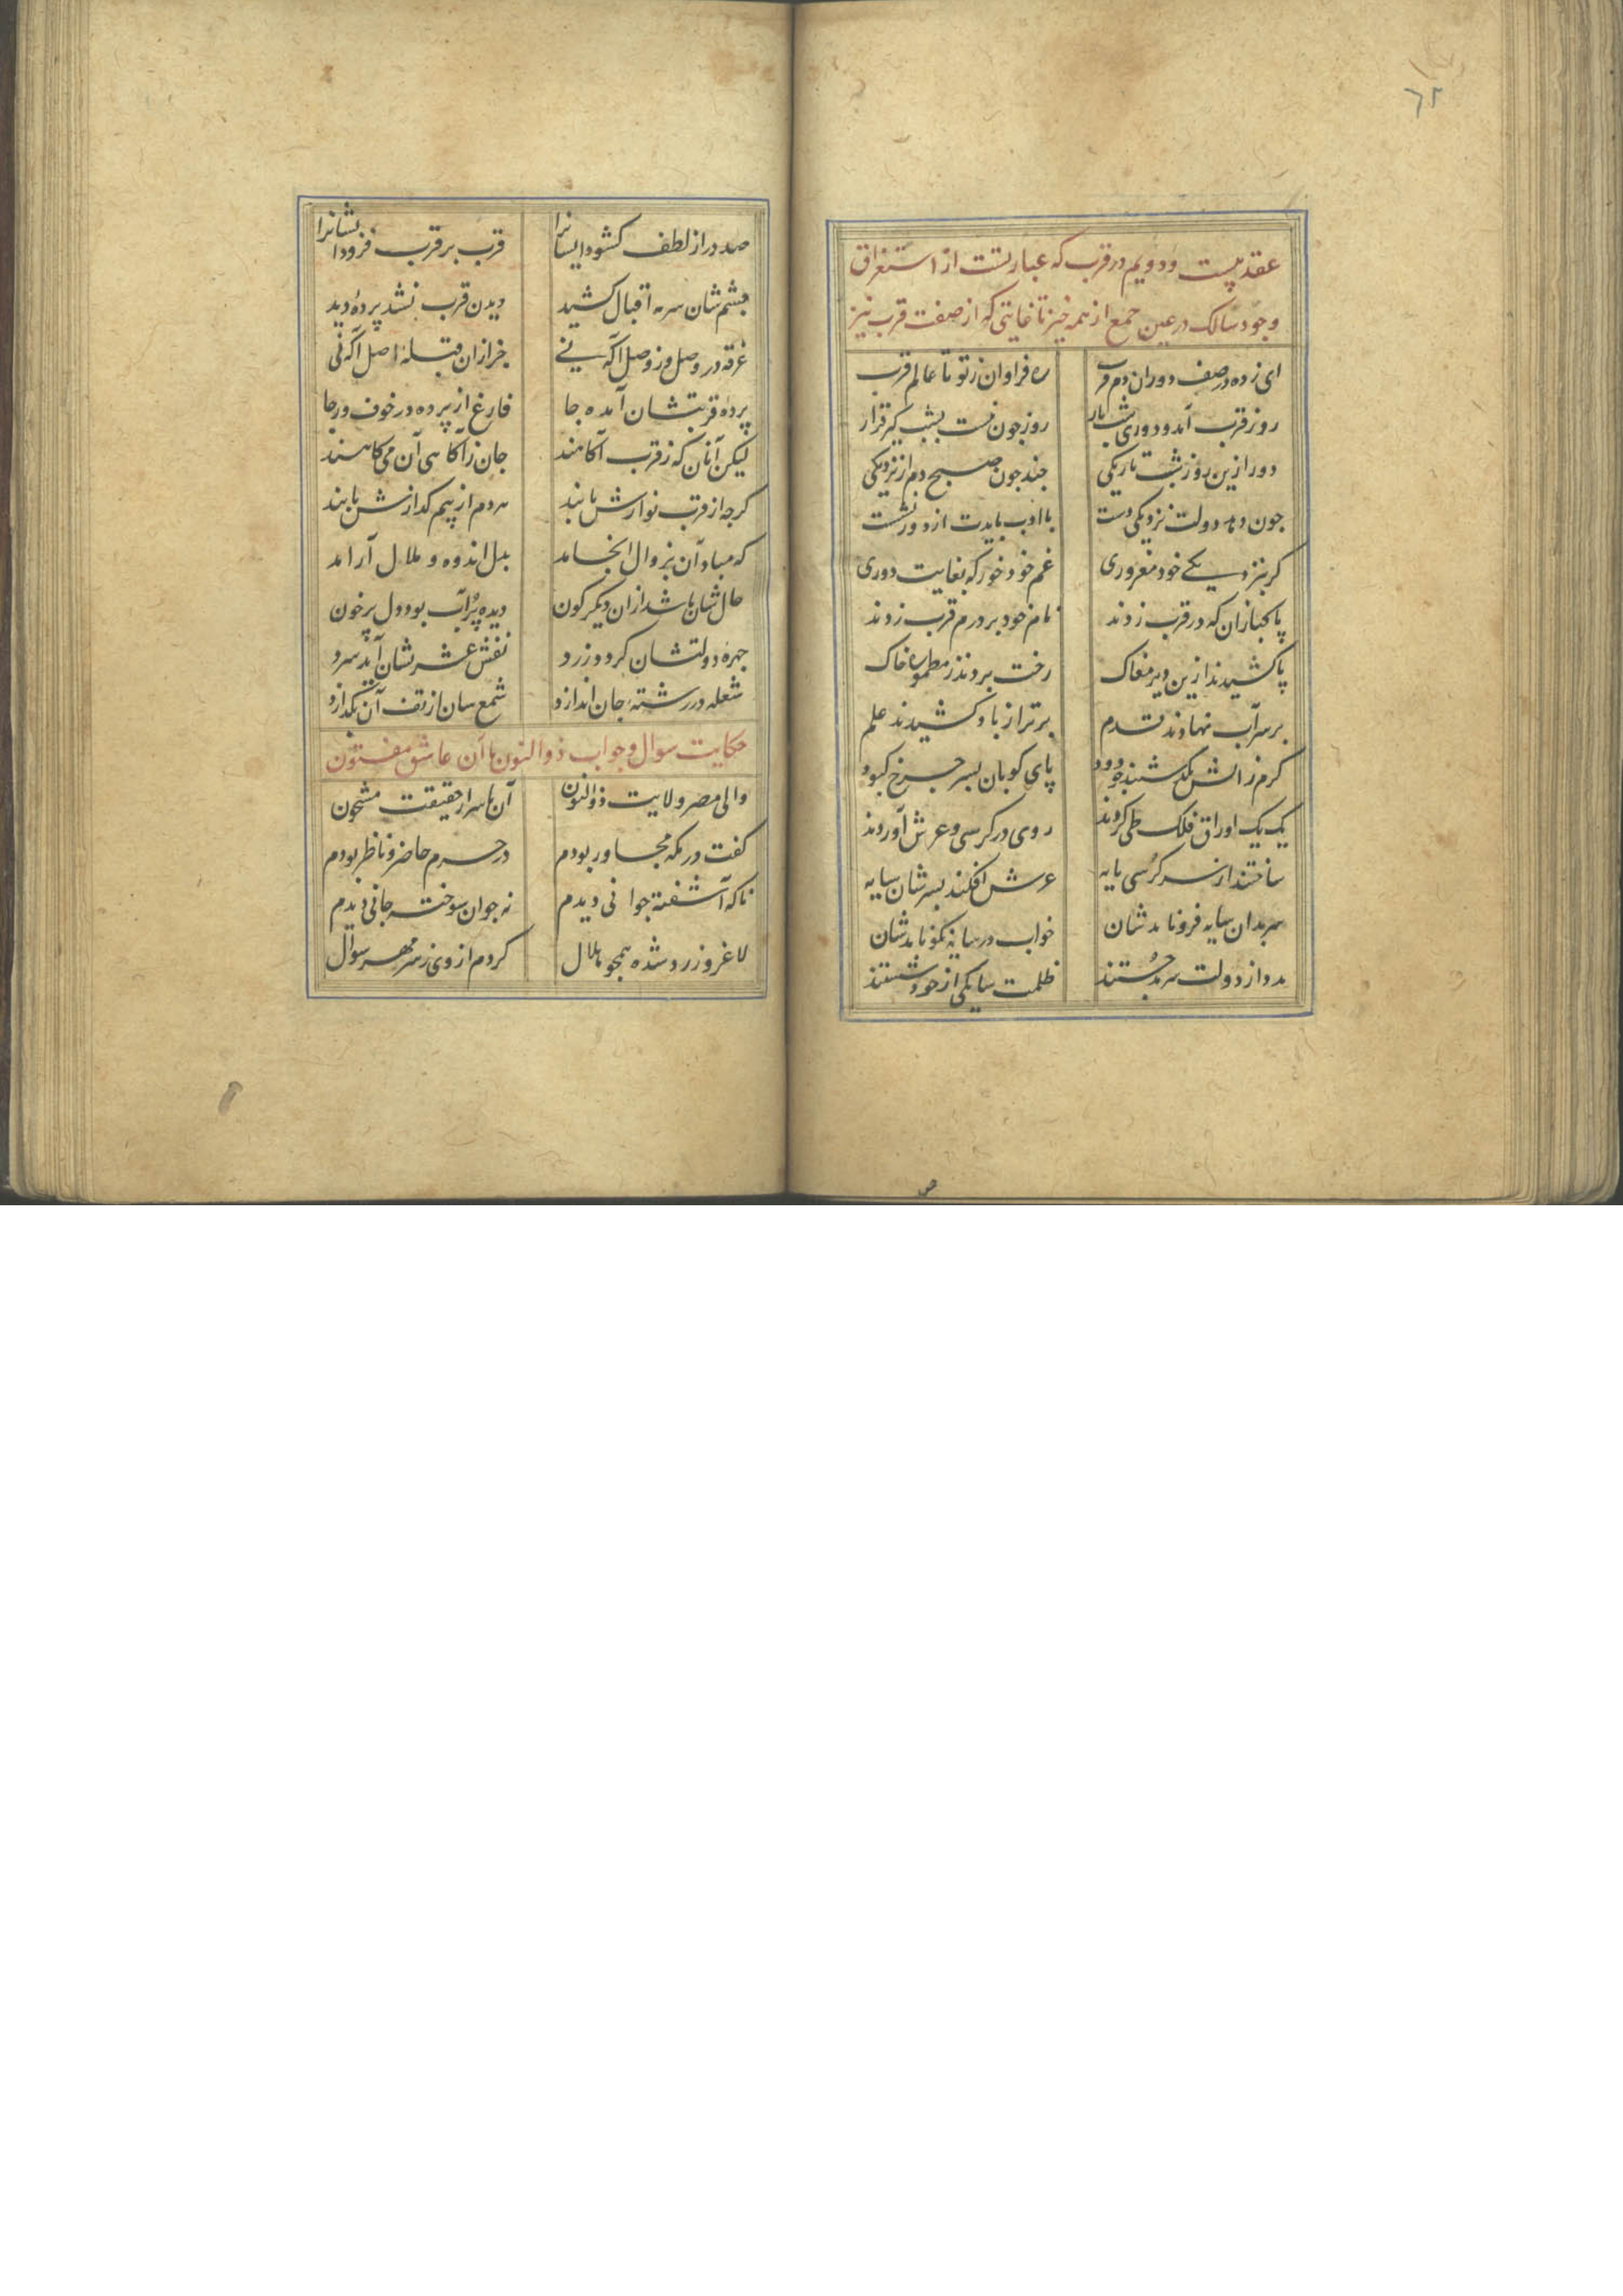 ٦٢
عقد بیست و دویم در قرب که عبارتست از استغراق
وجود سالک در عین جمع از همه چیز تا غایتی که از صفت قرب نیز
ای زده در صف دوران دم قرب ره فراوان ز تو تا عالم قرب
روز قرب آمد و دوری شب تار روز چون نیست بشب گیر قرار
دور ازین روز شبت تاریکی چند چون صبح دم از نزدیکی
چون دهد دولت نزدیکی دست با ادب بایدت از دور نشست
گر بنزدیکی خود مغروری غم خود خور که بغایت دوری
پاکبازان که در قرب زدند نام خود بر درم قرب زدند
پا کشیدند ازین دیر مغاک رخت بردند ز مطموره خاک
بر سر آب نهادند قدم برتر از باد کشیدند علم
گرم ز آتش بگذشتند چو دود پای کوبان بسر چرخ کبود
یک یک اوراق فلک طی کردند روی در کرسی و عرش آوردند
ساختند از سر کرسی پایه عرش افکند بسرشان سایه
سر بدان سایه فرو نامدشان خواب در سایه نکو نامدشان
مدد از دولت سرمد جستند ظلمت سایگی از خود شستند
صد در از لطف گشود ایشانرا قرب بر قرب فزود ایشانرا
چشم شان سرمه اقبال کشید دیدن قرب نشد پرده دید
غرقه در وصل و ز وصل آگه نی جز از ان قبله اصل آگه نی
پرده قربتشان آمده جا فارغ از پرده در خوف و رجا
لیکن آنان که ز قرب آگاهند جان ز آگاهی آن می کاهند
گرچه از قرب نوازش یابند هر دم از بیم گدازش یابند
که مباد آن بزوال انجامد بدل اندوه و ملال آرامد
حال شان باشد ازان دیگر گون دیده پرآب بود دل پر خون
چهره دولتشان گردد زرد نفس عشرتشان آید سرد
شعله در رشته جان اندازد شمع سان از تف آن بگدازد
حکایت سوال و جواب ذوالنون با آن عاشق مفتون
والی مصر ولایت ذوالنون آن باسرار حقیقت مشحون
گفت در مکه مجاور بودم در حرم حاضر و ناظر بودم
ناگه آشفته جوانی دیدم نه جوان سوخته جانی دیدم
لاغر و زرد شده همچو هلال کردم از وی ز سر مهر سوال